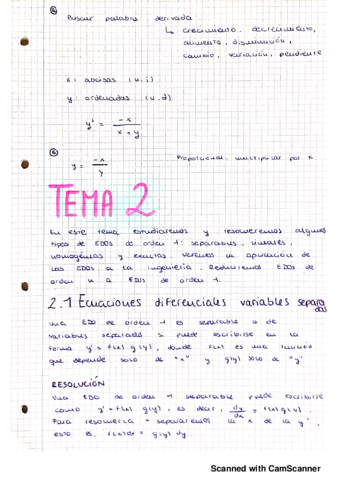 ④
Buscar palabra derivada
↳ crecimiento, decrecimiento,
aumento, disminución,
cambio, variación, pendiente
x: abcisas (v.i)
y: ordenadas (v.d)
y' = -x / x + y
⑥
y = -x / y Proporcional: multiplicar por k
TEMA 2
En este tema estudiaremos y resolveremos algunos
tipos de EDOs de orden 1: separables, lineales,
homogéneas y exactas. Veremos la aplicación de
las EDOs a la ingeniería. Reduciremos EDOs de
orden n a EDOs de orden 1.
2.1 Ecuaciones diferenciales variables separadas
Una EDO de orden 1 es separable o de
variables separadas si puede escribirse en la
forma y' = f(x) g(y), donde f(x) es una función
que depende solo de "x" y g(y) solo de "y"
RESOLUCIÓN
Una EDO de orden 1 separable puede escribirse
como y' = f(x) g(y), es decir, dy/dx = f(x) g(y).
Para resolverla separaremos la x de la y,
esto es, f(x)dx = g(y) dy
Scanned with CamScanner